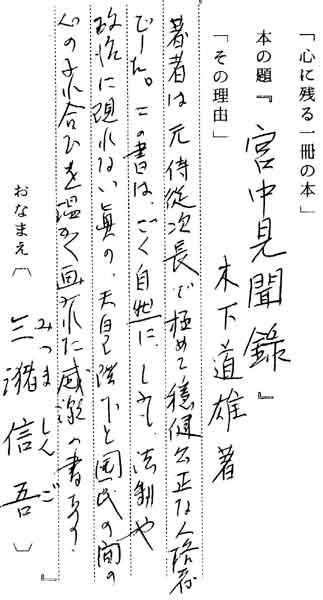 「心に残る一冊の本」
本の題『宮中見聞録』
木下道雄 著
「その理由」
著者は元侍従次長で極めて穏健公正な人格者
でした。この書は、ごく自然に、しかも、法制や
政治に現れない真の、天皇陛下と国民の間の
心のふれ合ひを温かく画かれた感激の書です。
おなまえ〔三潴信吾〕
みつま しんご
』